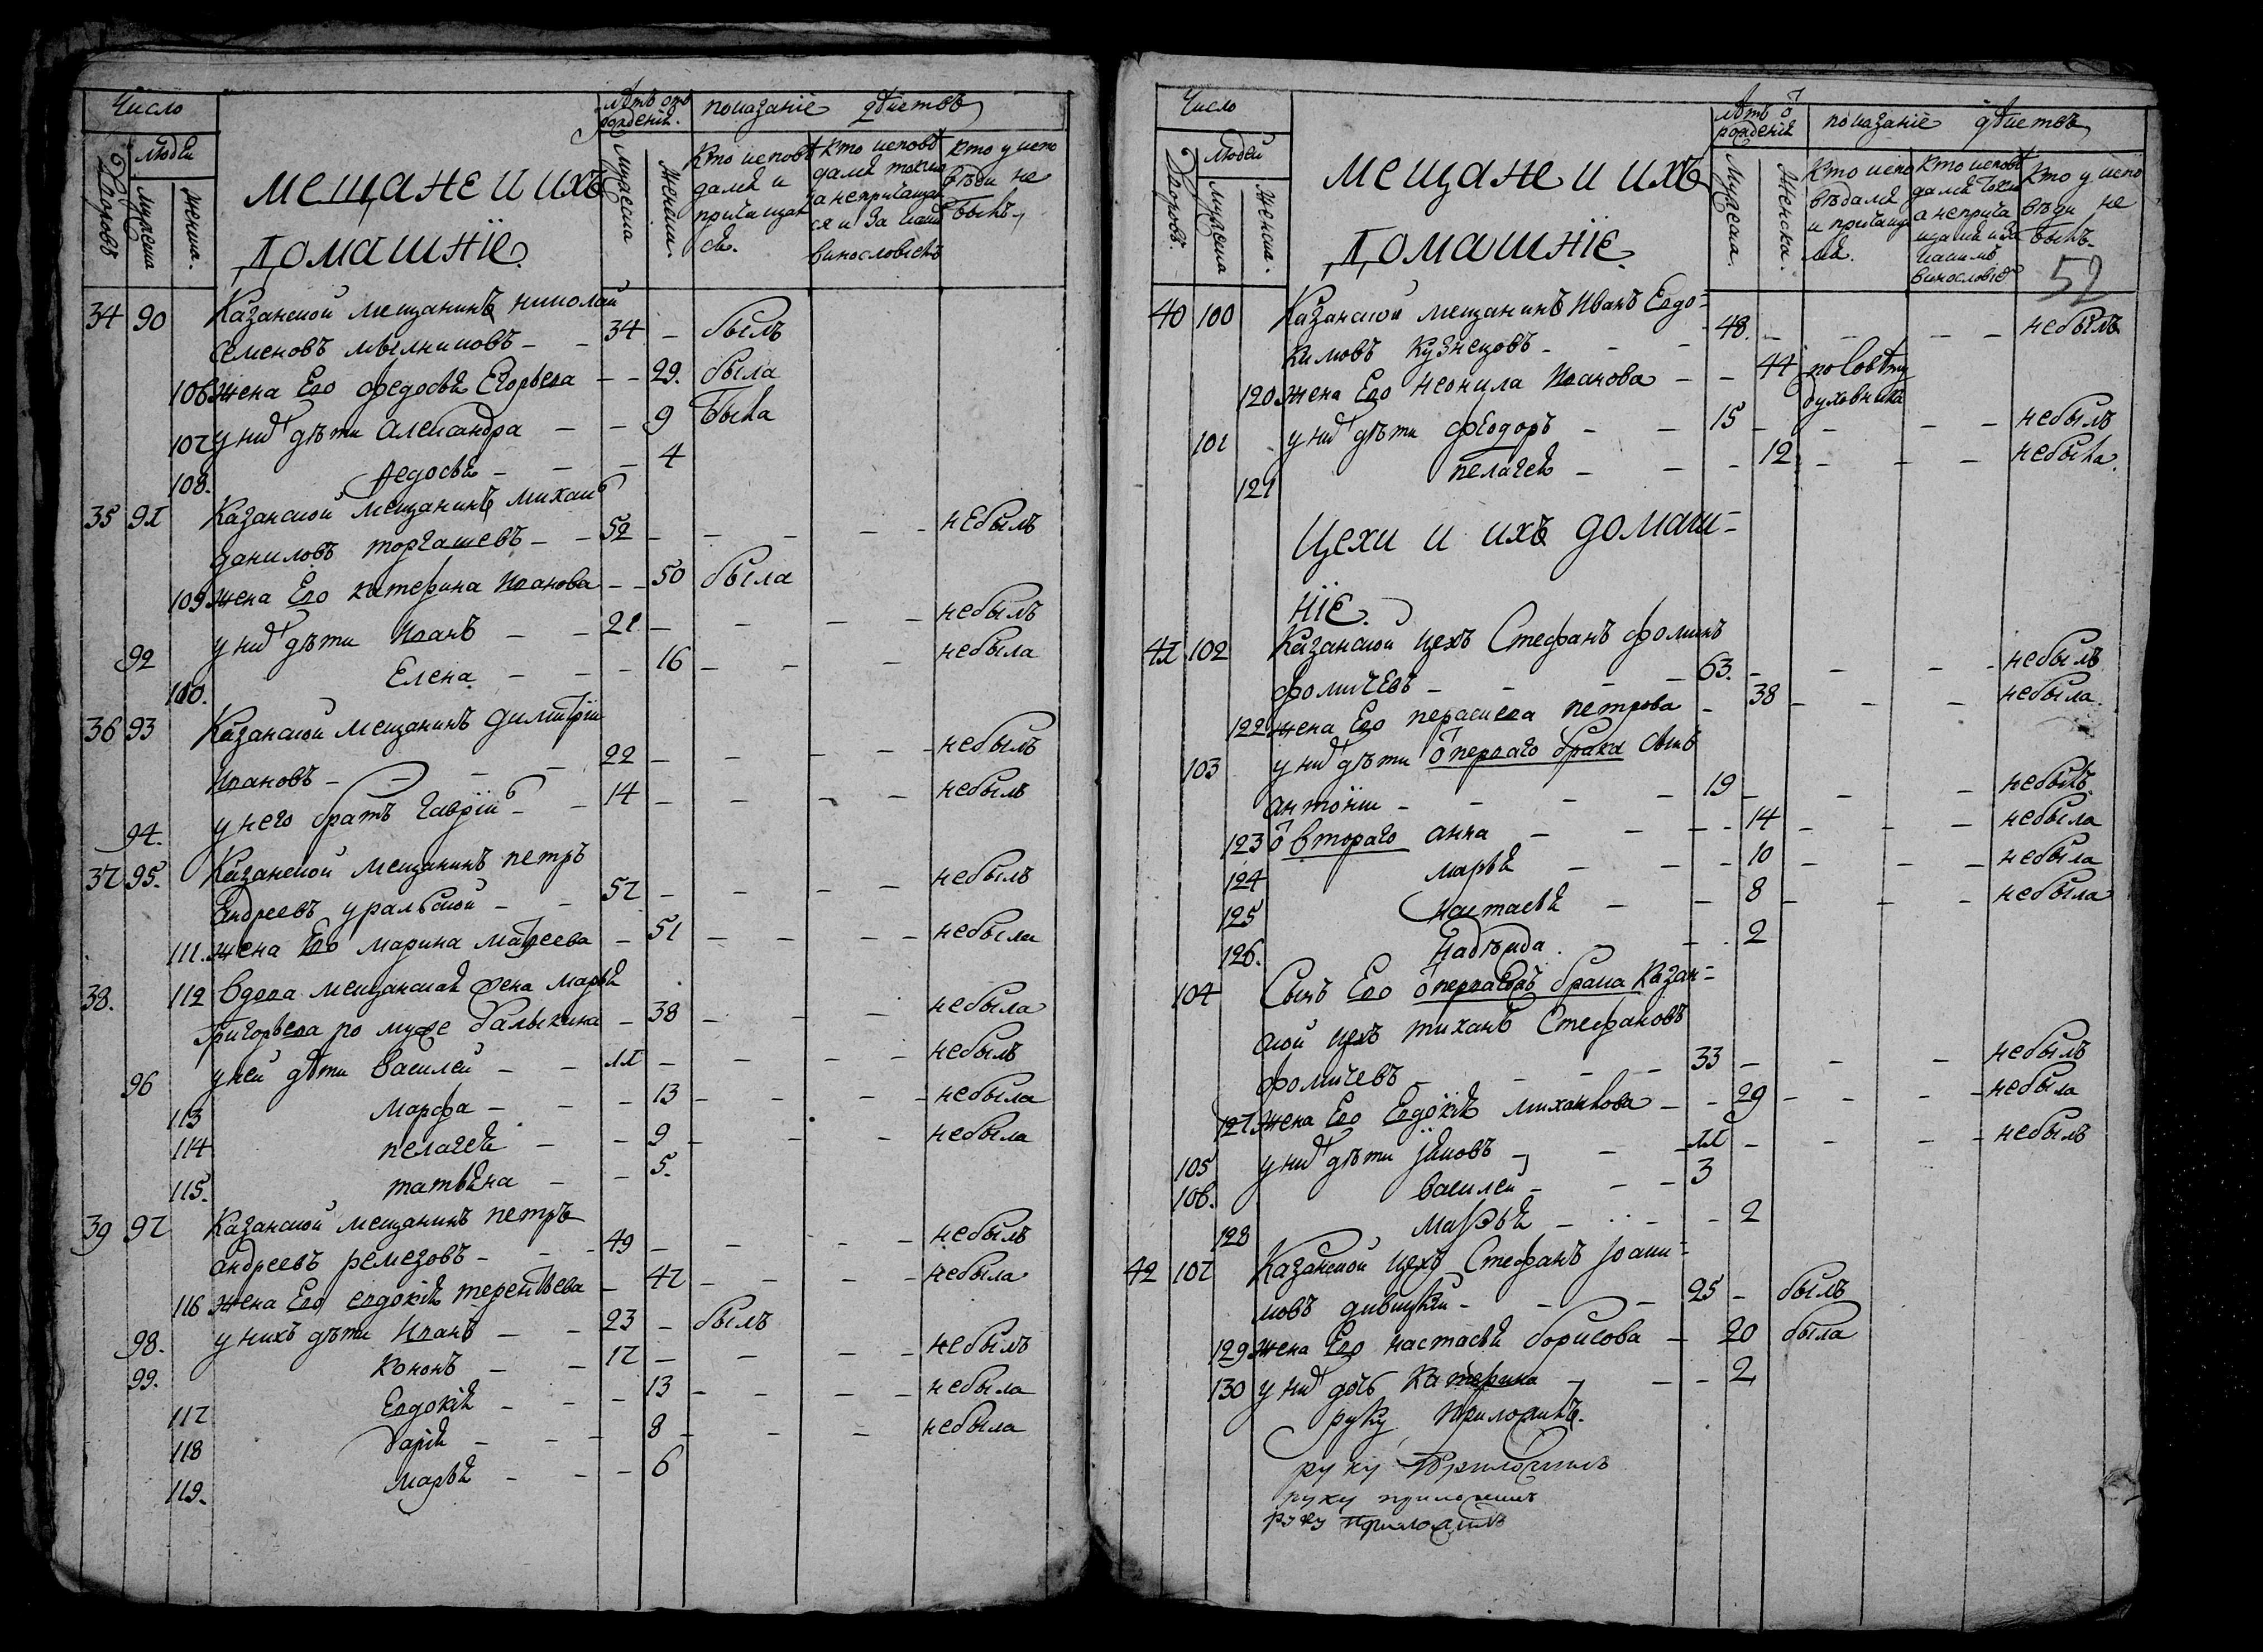 Число
Людей
Дворовъ
Мужеска
Женска.
мещане и ихъ
домашніе.
Лѣтъ отъ
рожденія.
Мужеска
Женска.
показаніе дѣйствъ
Кто исповѣ
дался и
причащал
ся.
Кто исповѣ
дался токмо
а не причащал
ся и за каки
винословіемъ
Кто у испо
вѣди не
былъ.
34 90 Казанской мещанинъ николай
семеновъ мыльниковъ - - 34 - былъ
106 жена Его федосья Егорьева - - 29. была
107 у нихъ дѣти александра - - 9 была
108. федосья - - - 4
35 91 Казанской мещанинъ михаил
даниловъ торгашевъ - - 52 - - - - - небылъ
109 жена Его катерина иванова - - 50 была
92 у нихъ дѣти иванъ - - 21 - - - - небылъ
110. Елена - - - 16 - - - небыла
36 93 Казанской мещанинъ димитрій
ивановъ - - - - 22 - - - - - небылъ
94. у него братъ гавріил - - 14 - - - - небылъ
37 95. Казанской мещанинъ петръ
андреевъ уральской - - 57 - - - - небылъ
111. жена Его марина матвеева - 51 - - - - небыла
38. 112 вдова мещанская жена марья
григорьева по муже балыкина - 38 - - - небыла
96 у ней дѣти василей - - 11 - - - - небылъ
113 марфа - - - 13 - - - - небыла
114 пелагея - - 9 - - - небыла
115. татьяна - - 5.
39 97 Казанской мещанинъ петръ
андреевъ ремезовъ - - - 49 - - - - небылъ
116 жена Его евдокія терентьева - 47 - - - - небыла
98. у нихъ дѣти иванъ - - 23 - былъ
99. кононъ - - 17 - - - - небылъ
117 Евдокія - - - 13 - - - - небыла
118 дарія - - - 8 - - - небыла
119. марья - - - 6
Число
Людей
Дворовъ.
Мужеска
Женска.
мещане и ихъ
домашніе.
Лѣтъ о
рожденія
Мужеска.
Женска.
показаніе дѣйствъ
Кто испо
вѣдался
и причаща
лся.
Кто исповѣ
дался токмо
а не прича
щался и за
какимъ
винословіе
Кто у испо
вѣди не
былъ.
52
40 100 Казанской мещанинъ Иванъ Евдо=
кимовъ Кузнецовъ - - - 48. - - - - небылъ
120 жена Его неонила иванова - - 44 по совѣту
духовника
101 у нихъ дѣти феодоръ - - 15 - - - - небылъ
121 пелагея - - - 12 - - - небыла.
Цехи и ихъ домаш=
ніе.
41 102 Казанской цехъ Стефанъ фоминъ
фомичевъ - - - - 63. - - - - небылъ
122 жена Его параскева петрова - 38 - - - небыла.
103 у нихъ дѣти о перваго брака сынъ
антоній - - - - 19 - - - небылъ.
123 о втораго анна - - - - 14 - - - небыла
124 марья - - - 10 - - - небыла
125 настасья - - 8 - - - небыла
126. надѣжда. - - - 2
104 Сынъ Его о первагожъ брака казан=
ской цехъ тиханъ Стефановъ
фомичевъ - - - 33 - - - небылъ
127 жена Его Евдокія михайлова - - 29 - - - - небыла
105 у нихъ дѣти яковъ - - - 11 - - - - небылъ
106. василей - - - 3
128 марья - - - 2
42 107 Казанской цехъ Стефанъ іоаки=
мовъ - - - 25 - былъ
129 жена Его настасья борисова - 20 была
130 у нихъ дочь Катерина - - - 2
руку приложилъ.
руку приложилъ
руку приложилъ
руку приложилъ